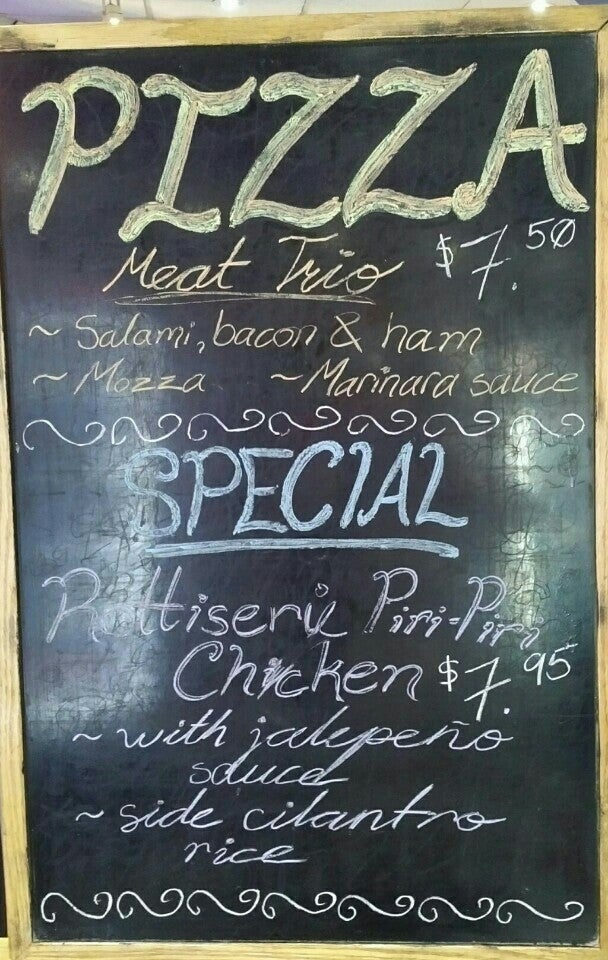 PIZZA
Meat Trio $7.50
~ Salami, bacon & ham
~ Mozza ~ Marinara sauce
SPECIAL
Rottiserie Piri-Piri
Chicken $7.95
~ with jalepeño
sauce
~ side cilantro
rice